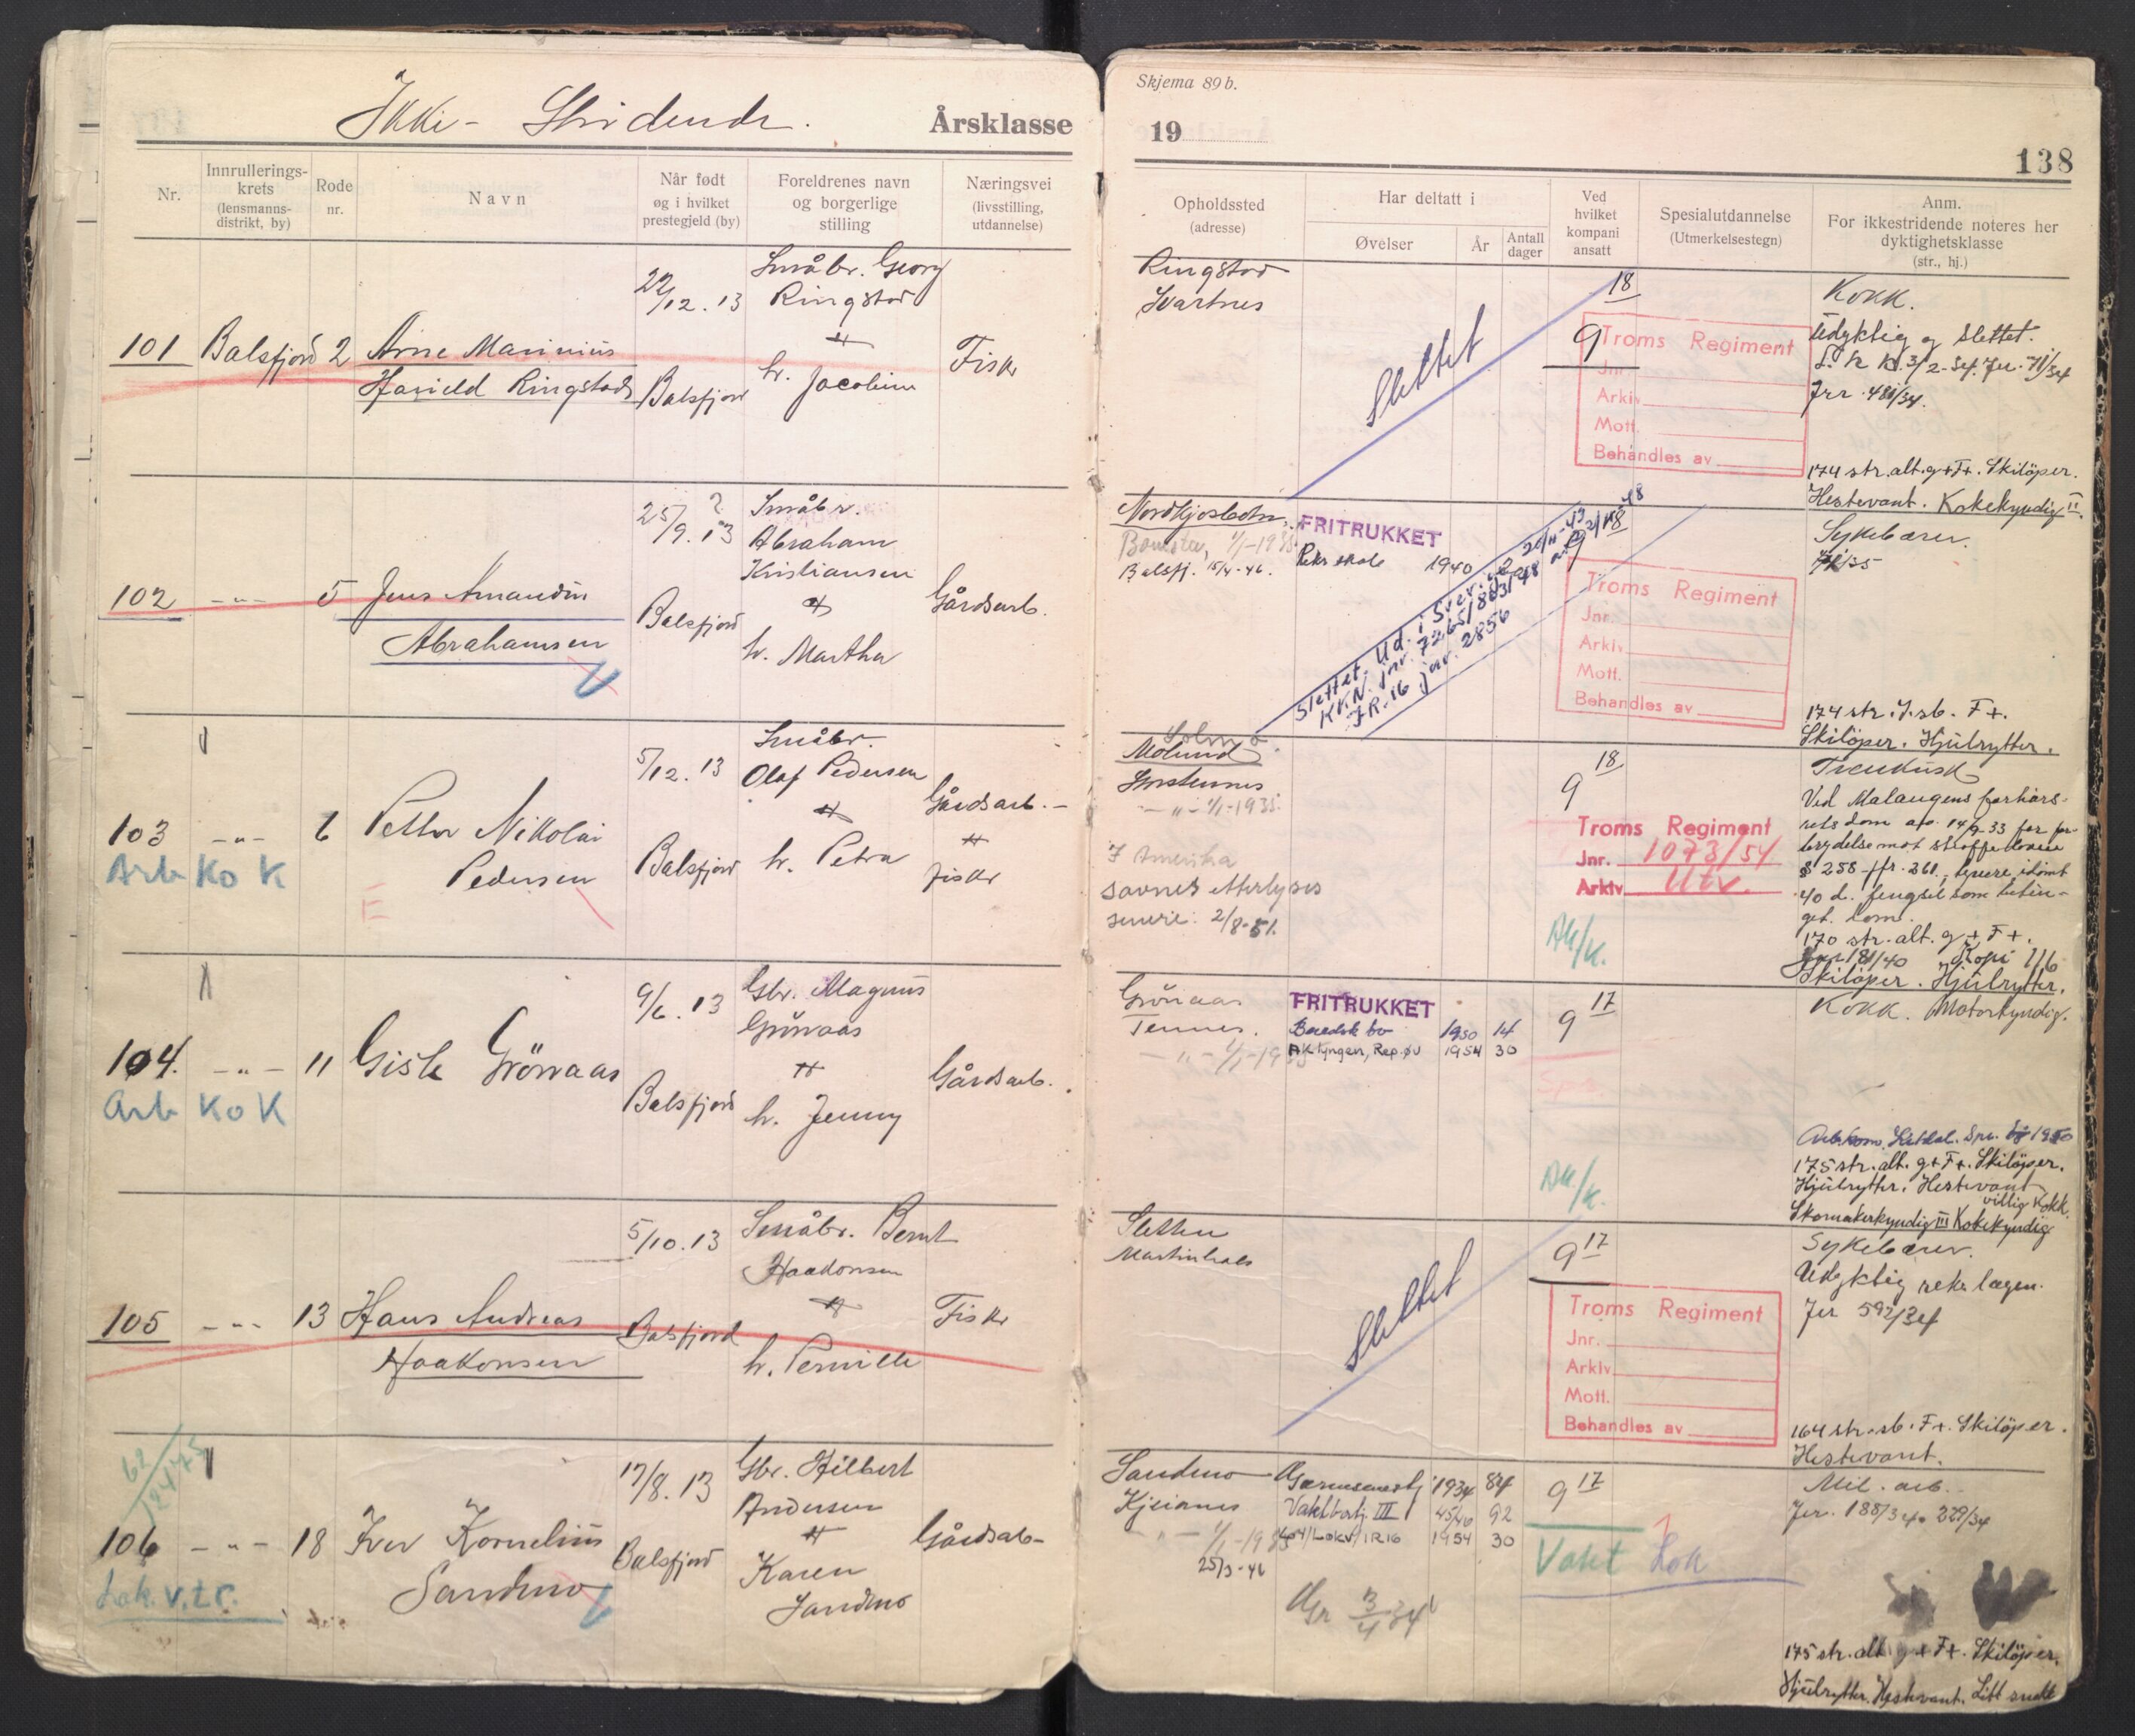 Ikke- Stridende. Årsklasse
Nr.
Innrullerings-
krets
(lensmanns-
distrikt, by)
Rode
nr.
Navn
Når født
og i hvilket
prestegjeld (by)
Foreldrenes navn
og borgerlige
stilling
Næringsvei
(livsstilling,
utdannelse)
22/12. 13
Småbr. Georg
Ringstad
101 Balsfjord 2 Arne Marinius
Harield Ringstad
Balsfjord
h. Jacobine
Fisker
25/9. 13
Småbr.
Abraham
Kristiansen
102 -"- 5 Jens Amandin
Abrahamsen
Balsfjord
h. Martha
Gårdsarb.
5/12. 13
Småbr.
Olaf Pedersen
103 -"- 6 Petter Nikolai
Pedersen
Balsfjord
h. Petra
Gårdsarb.
fisker
Arb Ko K
E
9/6. 13
Gbr. Magnus
Grönaas
104. -"- 11 Gisle Grönaas
Balsfjord
h. Jenny
Gårdsarb.
Arb Ko K
5/10. 13
Småbr. Bernt
Haakonsen
105 -"- 13 Hans Andreas
Haakonsen
Balsfjord
h. Pernille
Fisker
62/2475
17/8. 13
Gbr. Hilbert
Andersen
106 -"- 18 Iver Kornelius
Sandmo
Balsfjord
Karen
Sandmo
Gårdsarb-
Lok. v. tr.
Skjema 89 b.
19
138
Opholdssted
(adresse)
Har deltatt i
Øvelser
År
Antall
dager
Ved
hvilket
kompani
ansatt
Spesialutdannelse
(Utmerkelsestegn)
Anm.
For ikkestridende noteres her
dyktighetsklasse
(str., hj.)
Ringstad
Svartnes
Slettet
18
9
Troms Regiment
Jnr.
Arkiv
Mott.
Behandles av
Kokk.
Udyktig og slettet.
Jnr. 481/34.
174 str. alt. g + F+. Skilöper.
Hestevant. Kokekyndig II.
Nordkjosbotn
1/1-1938
Balsfj. 15/4-46.
FRITRUKKET
Rekr skole 1940
Slettet. Ud. i Sver.
KKN. jnr. 7265/
IR.16 jnr. 2856
18
9
Troms Regiment
Jnr.
Arkiv
Mott.
Behandles av
Sykebærer.
174 str. s. sb. F+.
Skilöper. Hjulrytter.
Molund
-"- 1/1-1938.
I Amerika
savnet etterlyses
senere: 2/8-51.
18
9
Troms Regiment
Jnr. 1073/54
Arkiv Utv.
AK/K.
Trenkusk
Ved Malangens forhörs-
rets dom av 14/9-33 for for-
brydelse mot straffeloven
§ 258 jfr. 261
40 d. fengsel som betin-
get. dom.
170 str. alt. g + F+.
Jnr 181/40 Kopi 216
Skilöper. Hjulrytter.
Grönaas
Tennes.
-"- 1/1-19
FRITRUKKET
Beredsk bo 1950 14
AK Lyngen, Rep.øv 1954 30
17
9
AK/K.
Kokk. Motorkyndig.
175 str. alt. g + F+. Skilöper.
Hjulrytter. Hestevant
villig Kokk.
Skomakerkyndig III Kokekyndig
Sletten
Martinhals
Slettet
17
9
Troms Regiment
Jnr.
Arkiv
Mott.
Behandles av
Sykebærer.
Udyktig rekr. legen.
Jnr 592/34
164 str. sb. F+. Skilöper.
Hestevant.
Sandmo
-"- 1/1-19
25/3-46
1934 84
Vaktbatj. III 45/46 92
Lokv/IR16 1954 30
17
9
Vakt Lok
3/4 34
Mil. arb.
Jnr. 188/34. 329/34
175 str. alt. g + F+. Skilöper.
Hjulrytter. Hestevant. Litt snekk